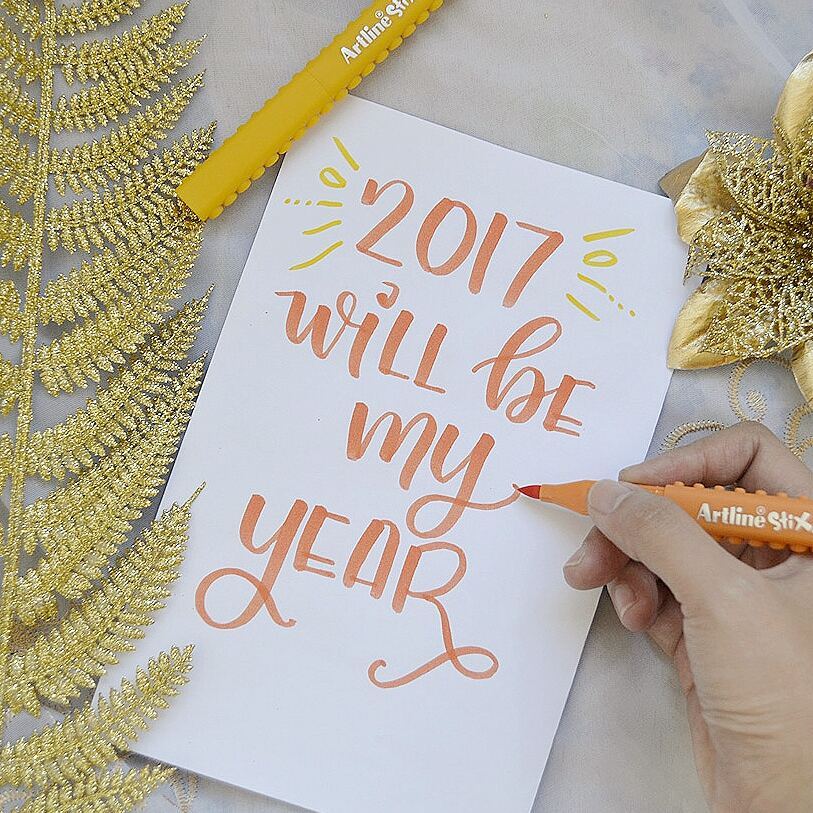 Artline® Stix
2017
will be
my
YEAR
Artline® Stix